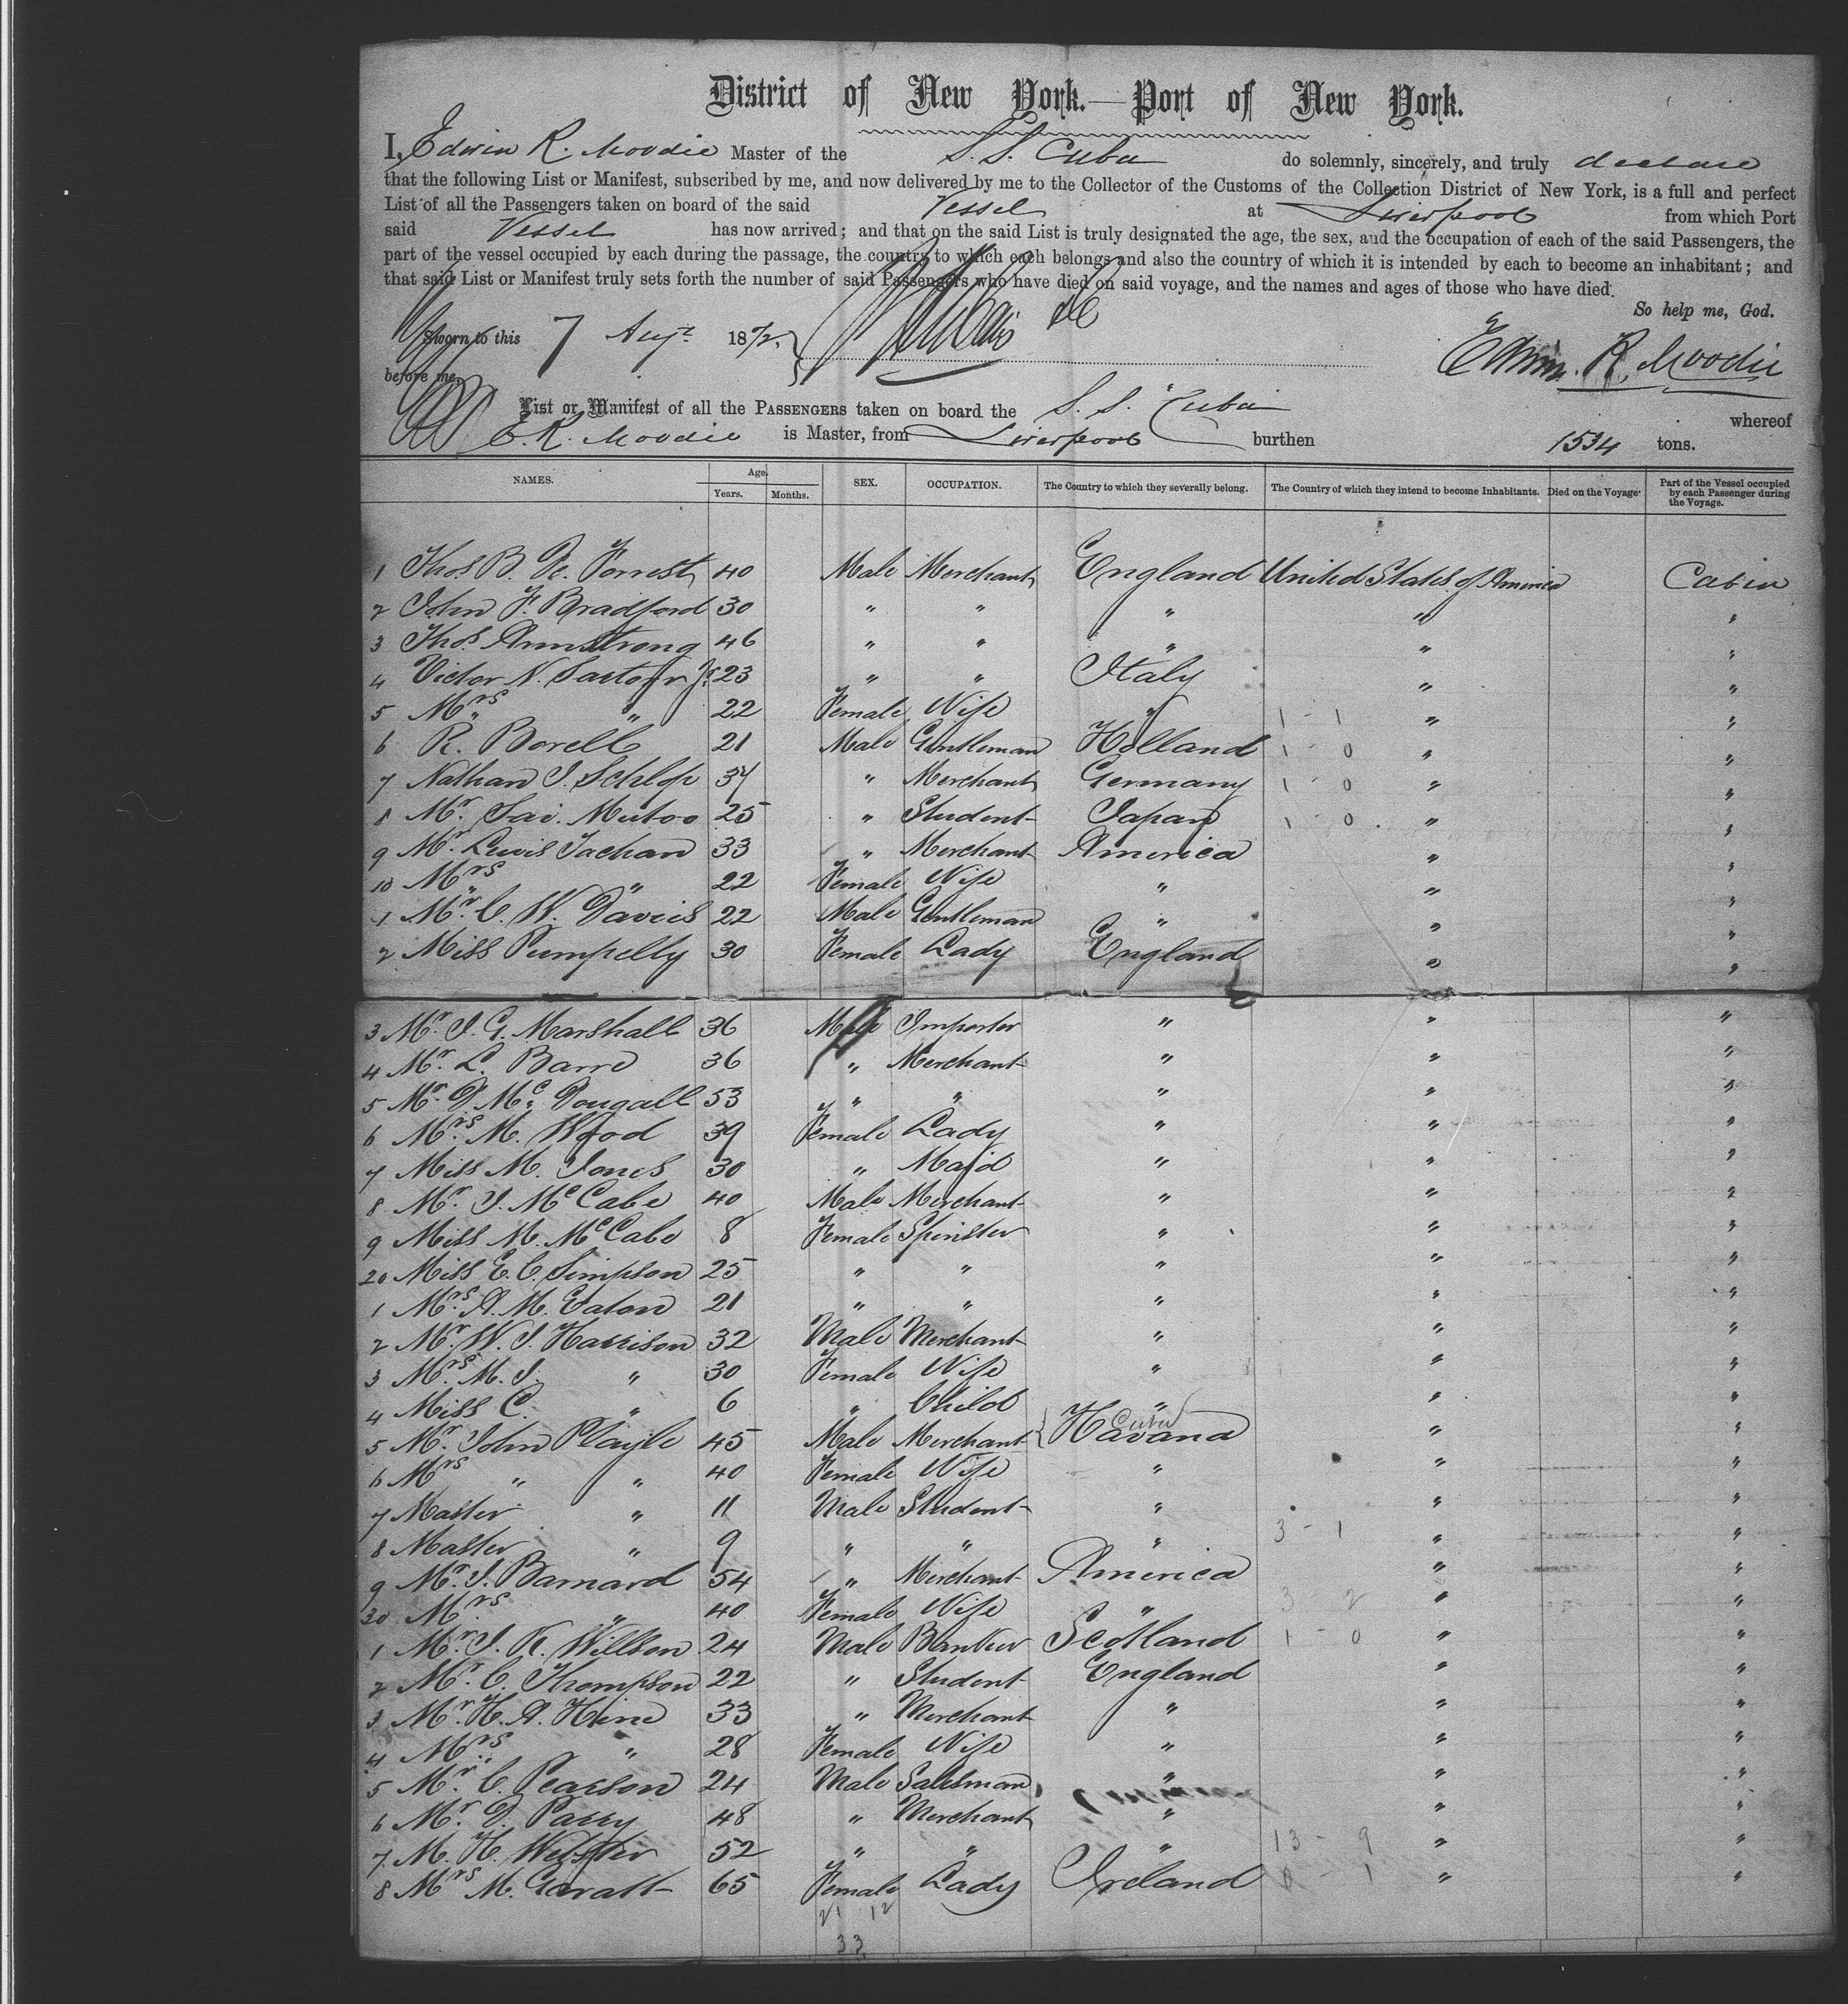 District of New York.—Port of New York.
I, Edwin R. Moodie Master of the S.S. Cuba do solemnly, sincerely, and truly declare
that the following List or Manifest, subscribed by me, and now delivered by me to the Collector of the Customs of the Collection District of New York, is a full and perfect
List of all the Passengers taken on board of the said Vessel at Liverpool from which Port
said Vessel has now arrived; and that on the said List is truly designated the age, the sex, and the occupation of each of the said Passengers, the
part of the vessel occupied by each during the passage, the country to which each belongs and also the country of which it is intended by each to become an inhabitant; and
that said List or Manifest truly sets forth the number of said Passengers who have died on said voyage, and the names and ages of those who have died.
So help me, God.
Sworn to this 7 Augt 1872
before me,
Edwin. R. Moodie
List or Manifest of all the PASSENGERS taken on board the S. S. Cuba whereof
E. R. Moodie is Master, from Liverpool burthen 1534 tons.
NAMES. Age. Years. Months. SEX. OCCUPATION. The Country to which they severally belong. The Country of which they intend to become Inhabitants. Died on the Voyage. Part of the Vessel occupied by each Passenger during the Voyage.
1 Thos. B. De. Forrest 40 Male Merchant England United States of America Cabin
2 John F. Bradford 30 " " " " "
3 Thos. Armstrong 46 " " " " "
4 Victor N. Sartori Jr. 23 " " Italy " "
5 Mrs " " 22 Female Wife " 1 - 1 " "
6 R. Borell 21 Male Gentleman Holland 1 - 0 " "
7 Nathan J. 37 " Merchant Germany 1 - 0 " "
8 Mr. Sai. Mutoo 25 " Student Japan 1 - 0 " "
9 Mr. Lewis 33 " Merchant America " "
10 Mrs " " 22 Female Wife " " "
1 Mr. C. W. Davies 22 Male Gentleman " " "
2 Miss Pumpelly 30 Female Lady England " "
3 Mr. J. G. Marshall 36 Male Importer " " "
4 Mr. L. Barre 36 " Merchant " " "
5 Mr. D. Mc. Dougall 53 " " " " "
6 Mrs. M. Wood 39 Female Lady " " "
7 Miss M. Jones 30 " Maid " " "
8 Mr. J. McCabe 40 Male Merchant " " "
9 Miss M. McCabe 8 Female Spinster " " "
20 Miss E. C. Simpson 25 " " " " "
1 Mrs. A. M. Eaton 21 " " " " "
2 Mr. W. J. Harrison 32 Male Merchant " " "
3 Mrs. M. J. " 30 Female Wife " " "
4 Miss C. " 6 " Child " " "
5 Mr. John Playle 45 Male Merchant Havana Cuba " "
6 Mrs " " 40 Female Wife " " "
7 Master " 11 Male Student " " "
8 Master " 9 " " " 3 - 1 " "
9 Mr. J. Barnard 54 " Merchant America " "
30 Mrs. " 40 Female Wife " 3 2 " "
1 Mr. J. K. Willson 24 Male Banker Scotland 1 - 0 " "
2 Mr. C. Thompson 22 " Student England " "
3 Mr. H. A. Hine 33 " Merchant " " "
4 Mrs. " 28 Female Wife " " "
5 Mr. C. Pearson 24 Male Salesman " " "
6 Mr D. Parry 48 " Merchant " " "
7 M. H. Webster 52 " " " 13 - 9 " "
8 Mrs M. Garatt 65 Female Lady Ireland 0 - 1 " "
21 12
33